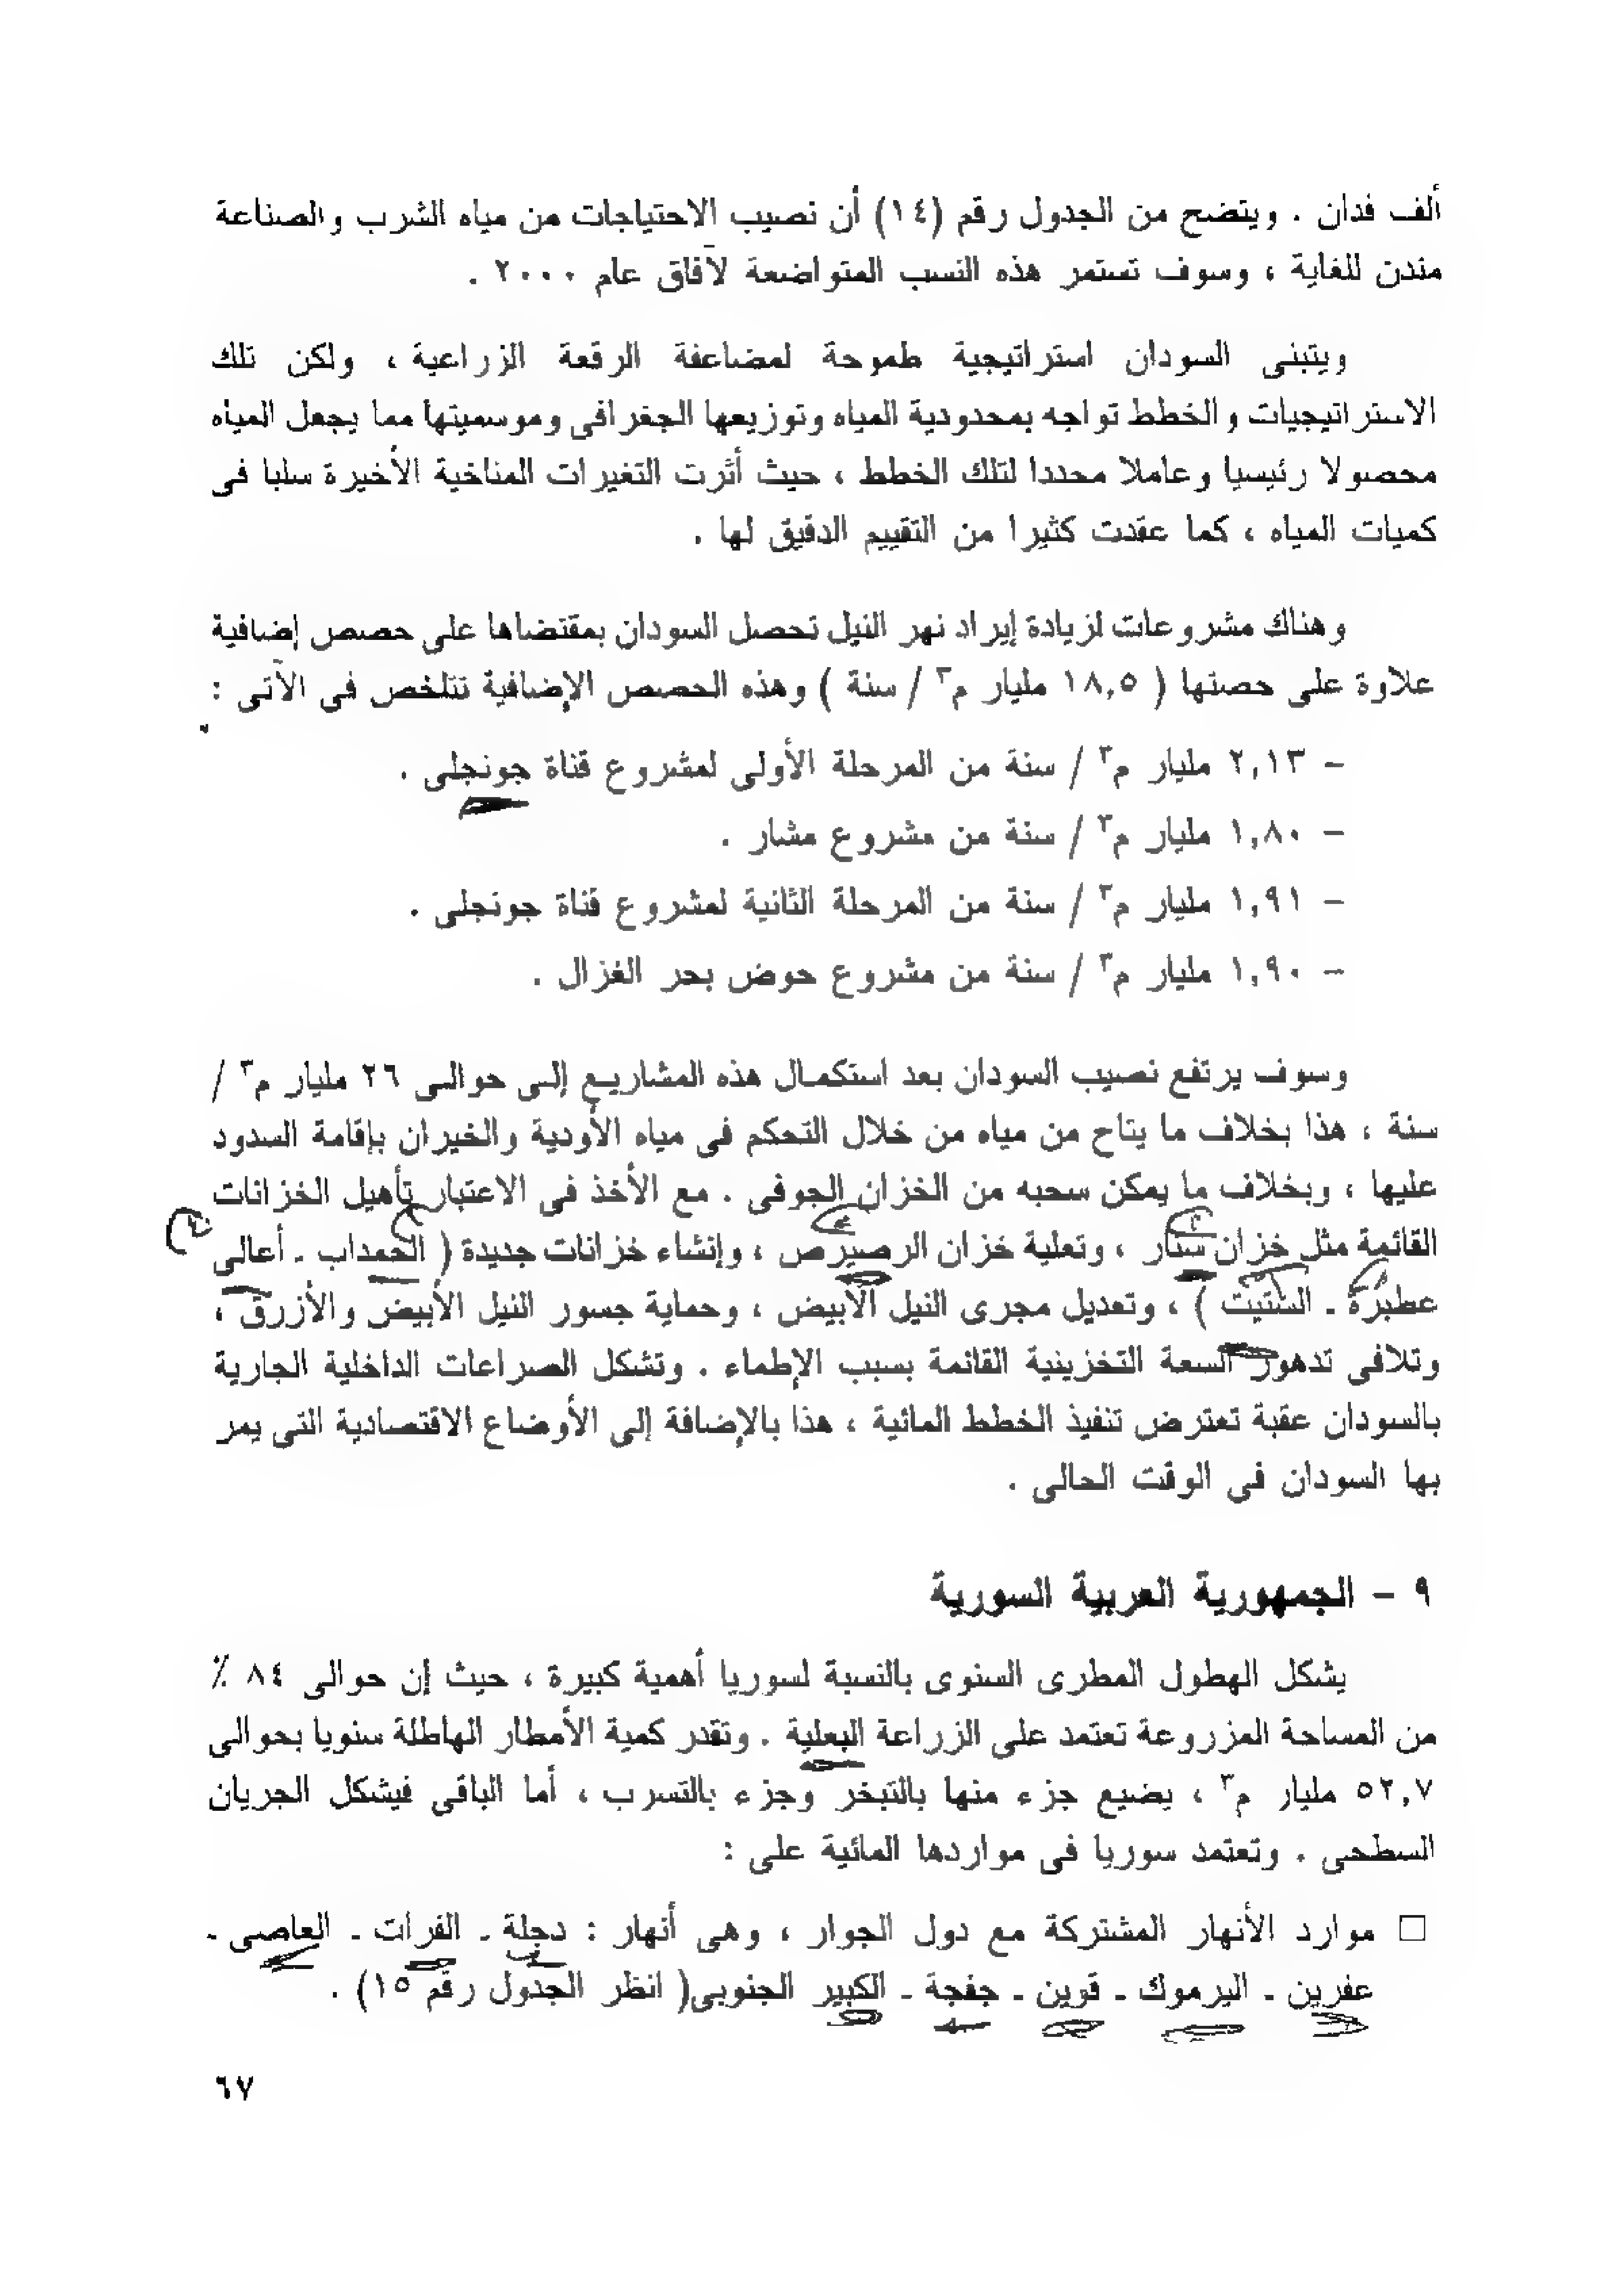 ألف فدان . ويتضح من الجدول رقم (١٤) أن نصيب الاحتياجات من مياه الشرب والصناعة
متدن للغاية ، وسوف تستمر هذه النسب المتواضعة لآفاق عام ٢٠٠٠ .
ويتبنى السودان استراتيجية طموحة لمضاعفة الرقعة الزراعية ، ولكن تلك
الاستراتيجيات والخطط تواجه بمحدودية المياه وتوزيعها الجغرافى وموسميتها مما يجعل المياه
محصولا رئيسيا وعاملا محددا لتلك الخطط ، حيث أثرت التغيرات المناخية الأخيرة سلبا فى
كميات المياه ، كما عقدت كثيرا من التقييم الدقيق لها .
وهناك مشروعات لزيادة إيراد نهر النيل تحصل السودان بمقتضاها على حصص إضافية
علاوة على حصتها ( ١٨,٥ مليار م٣ / سنة ) وهذه الحصص الإضافية تتلخص فى الآتى :
– ٢,١٣ مليار م٣ / سنة من المرحلة الأولى لمشروع قناة جونجلى .
– ١,٨٠ مليار م٣ / سنة من مشروع مشار .
– ١,٩١ مليار م٣ / سنة من المرحلة الثانية لمشروع قناة جونجلى .
– ١,٩٠ مليار م٣ / سنة من مشروع حوض بحر الغزال .
وسوف يرتفع نصيب السودان بعد استكمال هذه المشاريع إلى حوالى ٢٦ مليار م٣ /
سنة ، هذا بخلاف ما يتاح من مياه من خلال التحكم فى مياه الأودية والخيران بإقامة السدود
عليها ، وبخلاف ما يمكن سحبه من الخزان الجوفى . مع الأخذ فى الاعتبار تأهيل الخزانات
القائمة مثل خزان سنار ، وتعلية خزان الرصيرص ، وإنشاء خزانات جديدة ( الحمداب ـ أعالى
عطبرة ـ الستيت ) ، وتعديل مجرى النيل الأبيض ، وحماية جسور النيل الأبيض والأزرق ،
وتلافى تدهور السعة التخزينية القائمة بسبب الإطماء . وتشكل الصراعات الداخلية الجارية
بالسودان عقبة تعترض تنفيذ الخطط المائية ، هذا بالإضافة إلى الأوضاع الاقتصادية التى يمر
بها السودان فى الوقت الحالى .
٩ – الجمهورية العربية السورية
يشكل الهطول المطرى السنوى بالنسبة لسوريا أهمية كبيرة ، حيث إن حوالى ٨٤ ٪
من المساحة المزروعة تعتمد على الزراعة البعلية . وتقدر كمية الأمطار الهاطلة سنويا بحوالى
٥٢,٧ مليار م٣ ، يضيع جزء منها بالتبخر وجزء بالتسرب ، أما الباقى فيشكل الجريان
السطحى . وتعتمد سوريا فى مواردها المائية على :
□ موارد الأنهار المشتركة مع دول الجوار ، وهى أنهار : دجلة ـ الفرات ـ العاصى ـ
عفرين ـ اليرموك ـ قوين ـ جغجة ـ الكبير الجنوبى( انظر الجدول رقم ١٥) .
٦٧